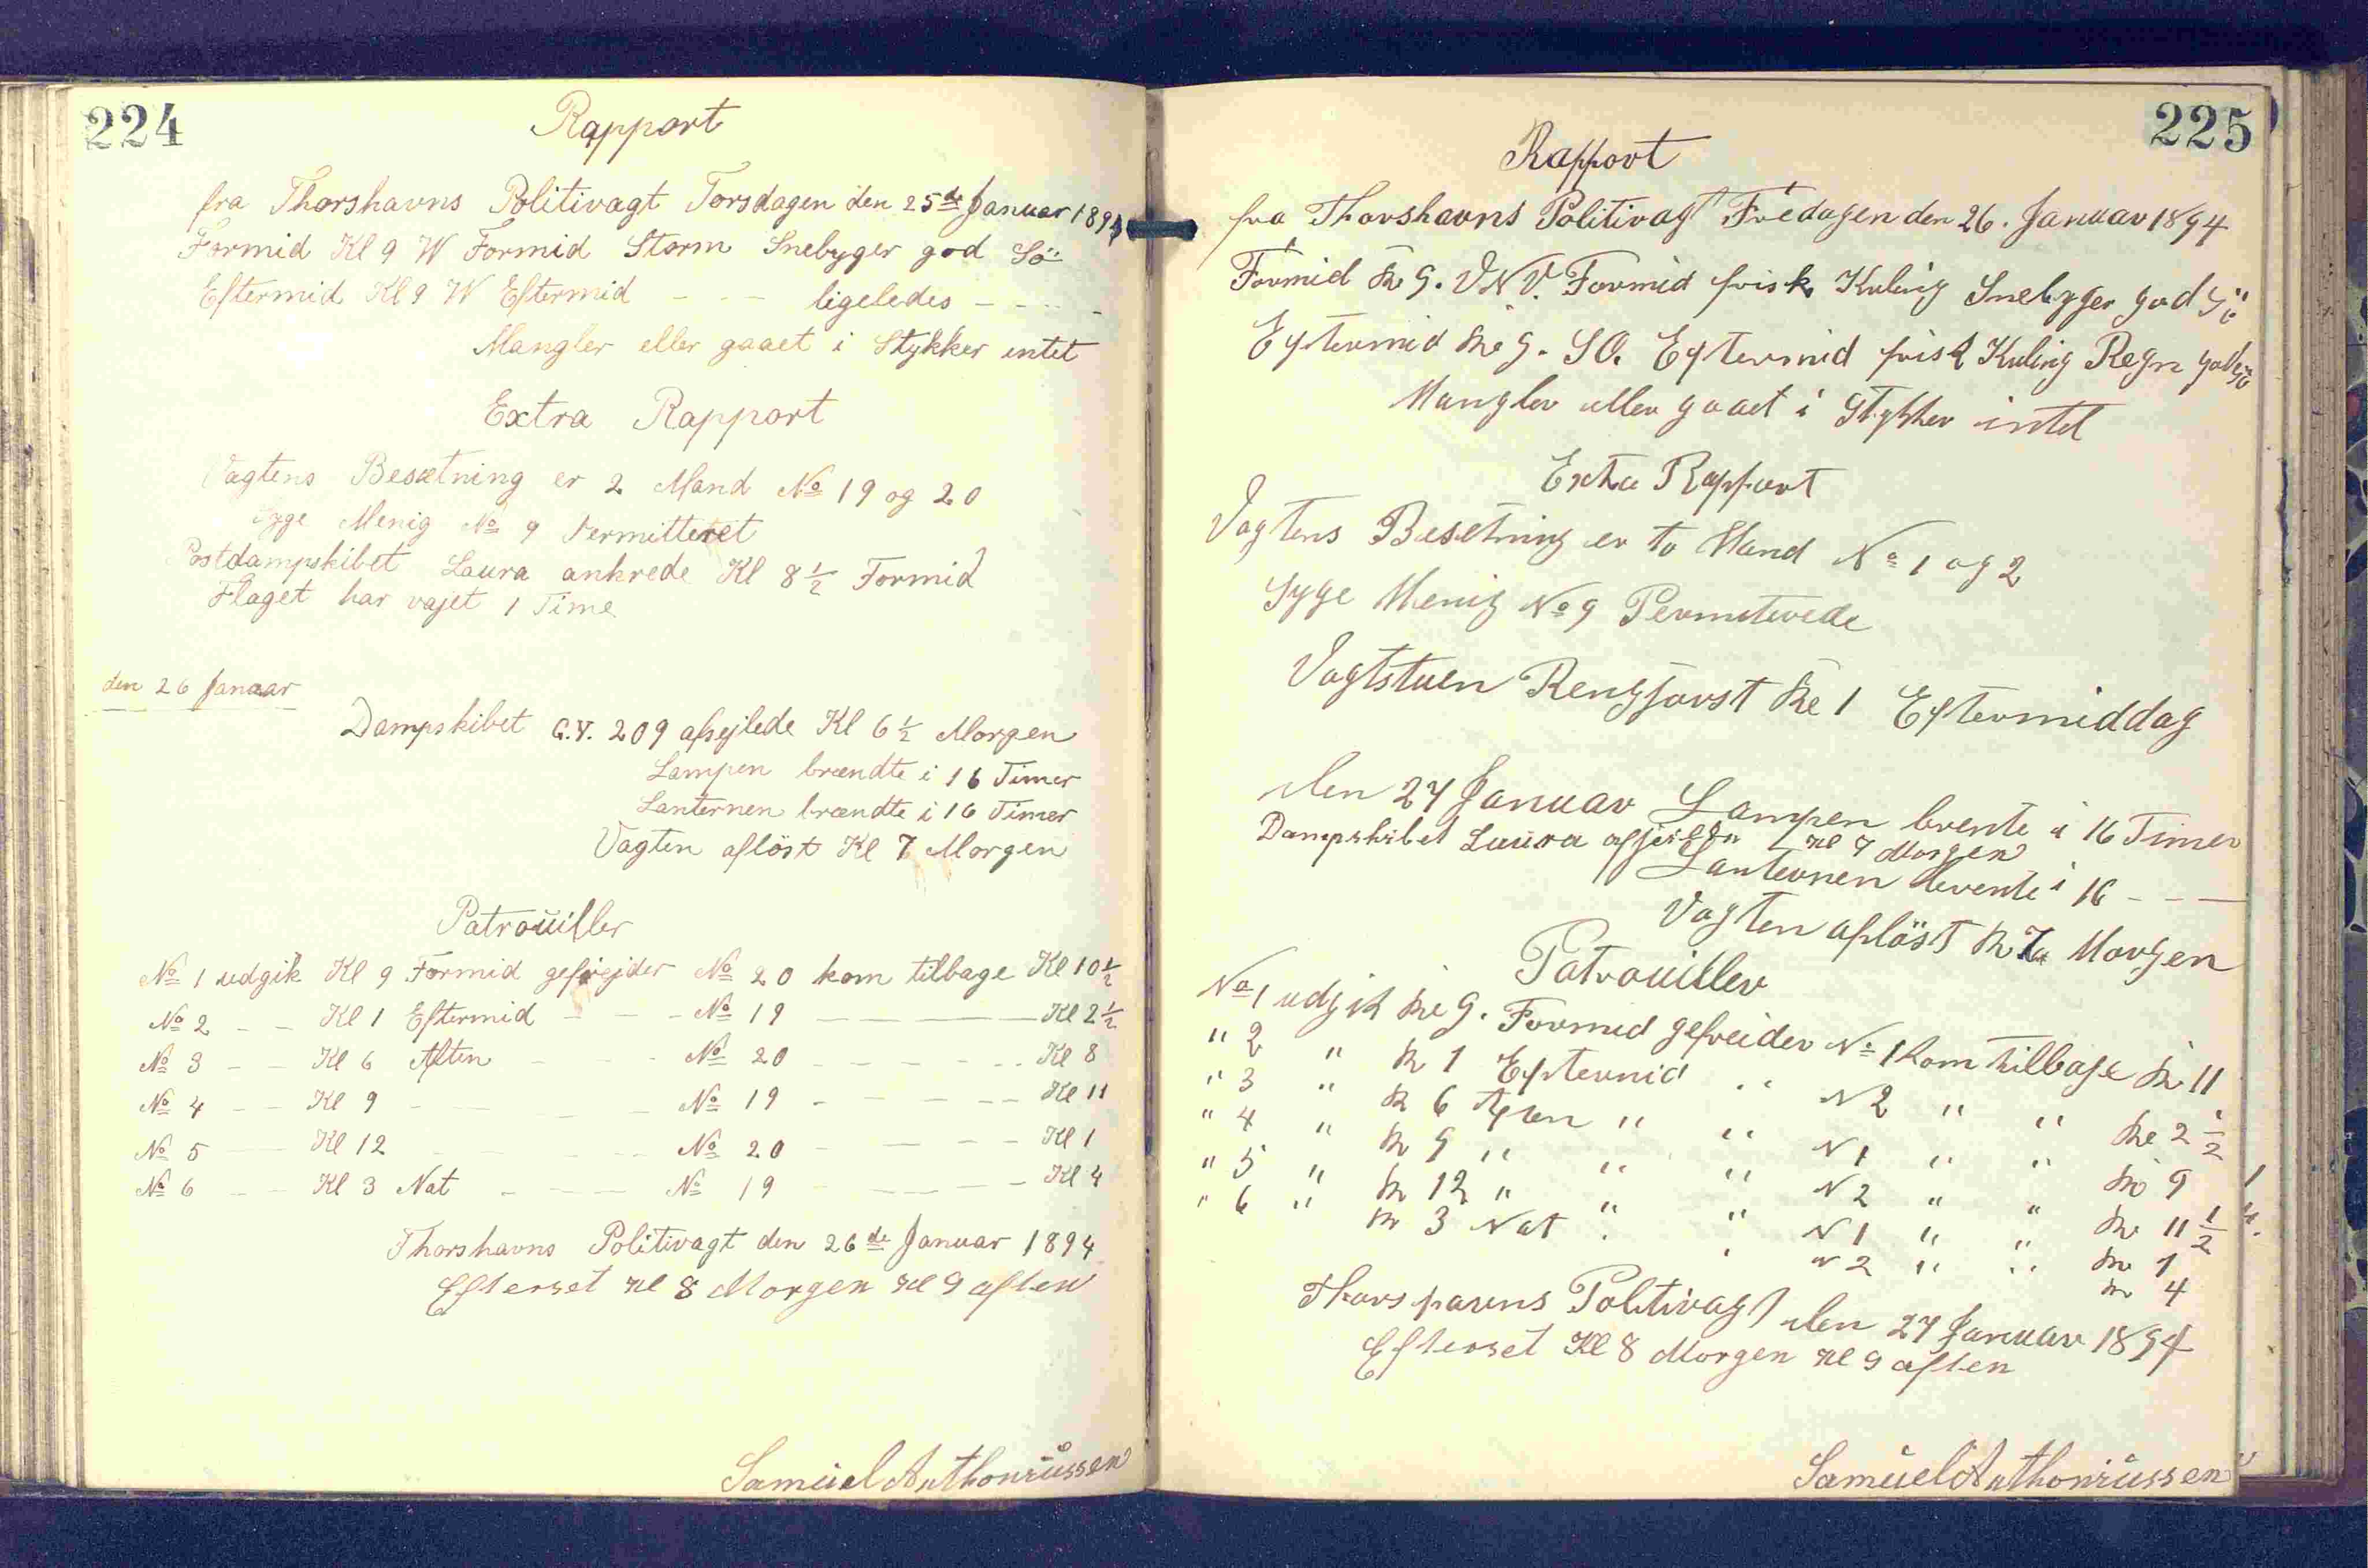 224
Rapport
fra Thorshavns Politivagt Torsdagen den 25de Januar 1894
Formid Kl 9 W Formid Storm Snebyger god Sö
Eftermid Kl 9 W Eftermid - - - ligeledes - - - -
Mangler eller gaaet i Stykker intet
Extra Rapport
Vagtens Besætning er 2 Mand No 19 og 20
Syge Menig No 9 Permitteret
Postdampskibet Laura ankrede Kl 8 1/2 Formid
Flaget har vajet 1 Time
den 26 Januar
Dampskibet G.Y. 209 afsejlede Kl 6 1/2 Morgen
Lampen brændte i 16 Timer
Lanternen brændte i 16 Timer
Vagten aflöst Kl 7 Morgen
Patrouiller
No 1 udgik Kl 9 Formid gefrejder No 20 kom tilbage Kl 10 1/2
No 2 - - Kl 1 Eftermid - - - No 19 - - - Kl 2 1/2
No 3 - - Kl 6 Aften - - - No 20 - - - - - Kl 8
No 4 - - Kl 9 - - - - No 19 - - - - - Kl 11
No 5 - - Kl 12 - - - - No 20 - - - - - Kl 1
No 6 - - Kl 3 Nat - - - - No 19 - - - - - Kl 4
Thorshavns Politivagt den 26de Januar 1894
Efterset Kl 8 Morgen Kl 9 aften
Samuel Anthoniussen
225
Rapport
fra Thorshavns Politivagt Fredagen den 26. Januar 1894
Formid Kl 9. VNV. Formid frisk Kuling Snebyger god Sö
Eftermid Kl 9. SO. Eftermid frisk Kuling Regn god Sö
Mangler eller gaaet i Stykker intet
Extra Rapport
Vagtens Besetning er to Mand No 1 og 2
Syge Menig No 9 Permiterede
Vagtstuen Rengjorst Kl 1 Eftermiddag
den 27 Januar Lampen brente i 16 Timer
Dampskibet Laura Kl 7 Morgen
Lanternen brente i 16 - - -
Vagten aflöst Kl 7 Morgen
Patrouiller
No 1 udgik Kl 9. Formid gefreider No 1 kom tilbage Kl 11
" 2 " Kl 1 Eftermid " N 2 " " Kl 2 1/2
" 3 " Kl 6 Aften " " N 1 " " Kl 9
" 4 " Kl 9 " " " N 2 " " Kl 11 1/2
" 5 " Kl 12 " " " N 1 " " Kl 1
" 6 " Kl 3 Nat " " N 2 " " Kl 4
Thorshavns Politivagt den 27 Januar 1894
Efterset Kl 8 Morgen Kl 9 aften
Samuel Anthoniussen